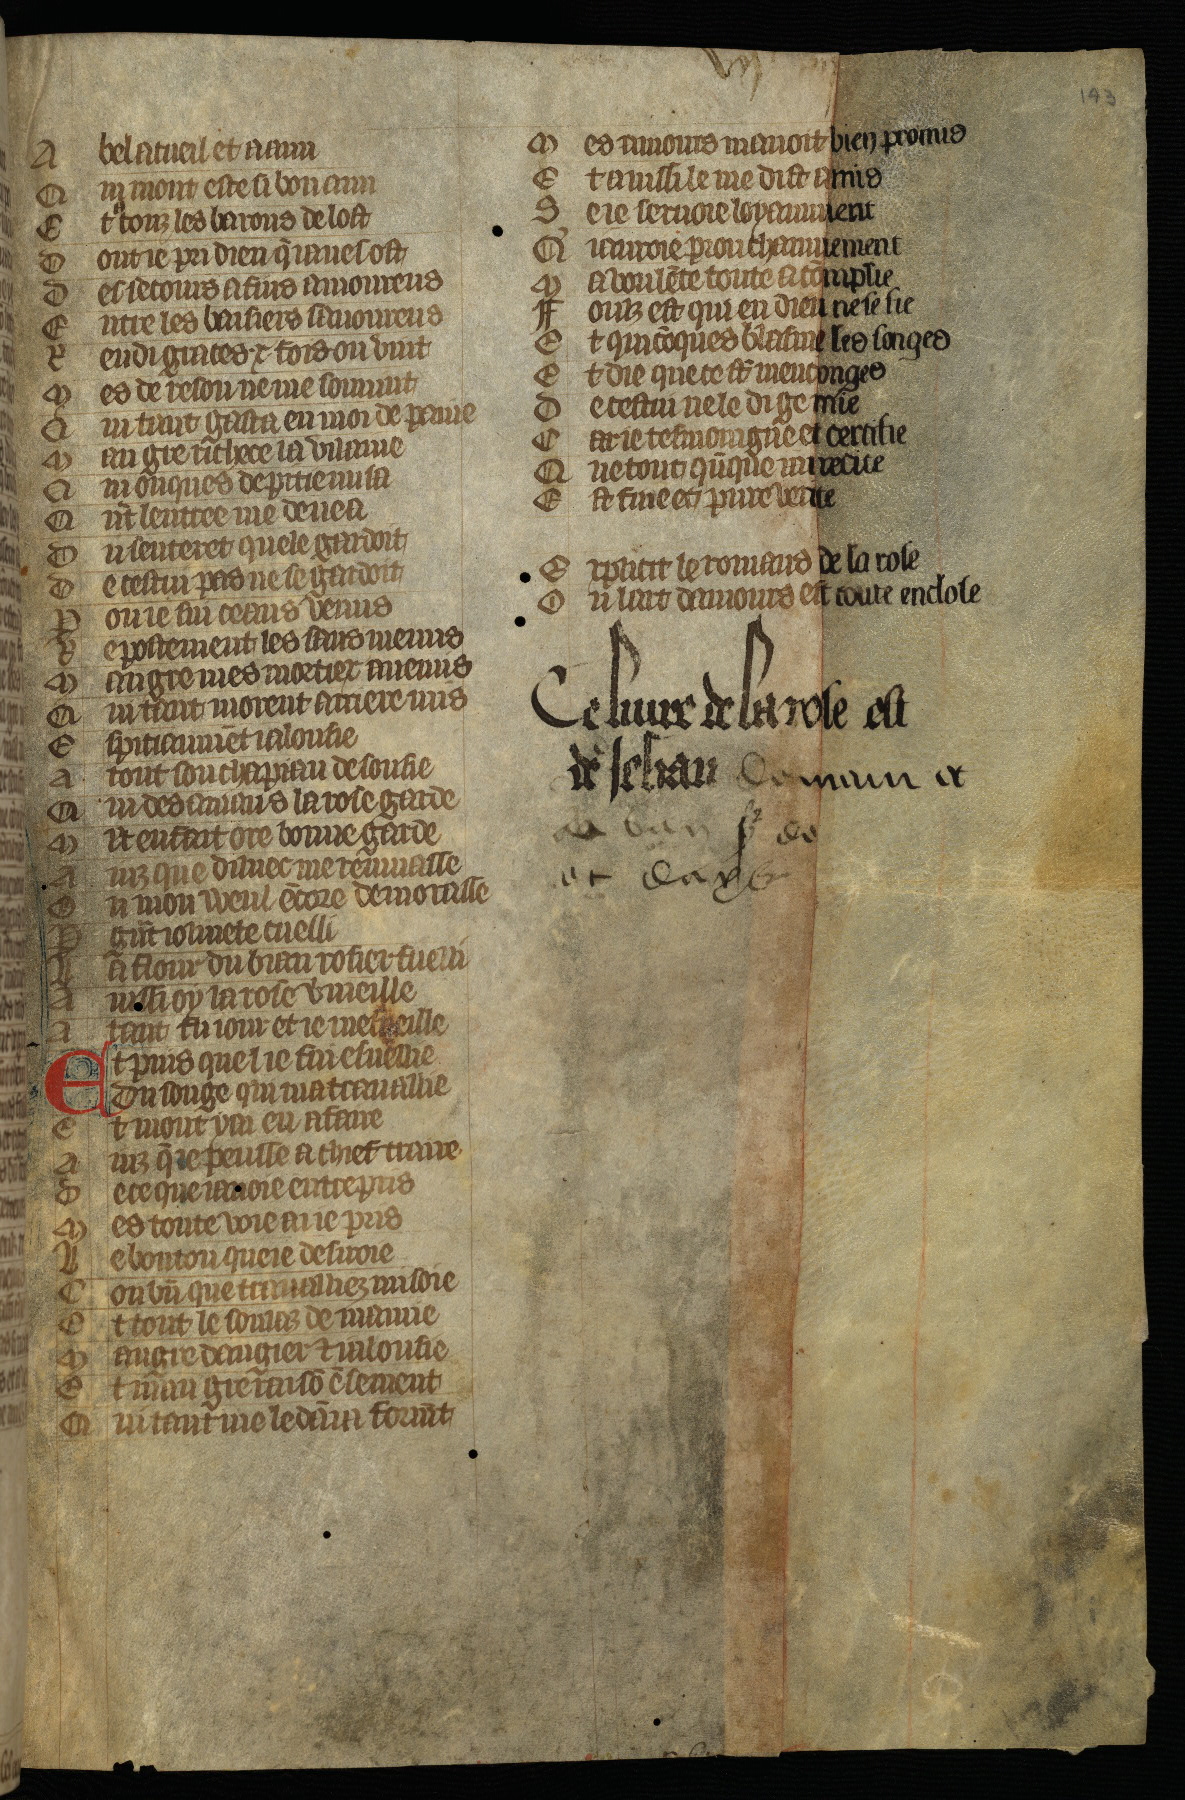 A bel acueil et a ami
Q ui mont este si bon ami
E t touz les barons de lost
D ont ie pri dieu q̄ iames ost
D es secours a fins amoureus
E ntre les baisiers sauoureus
R endi graces ⁊ fois ou vint
M es de reson ne me souuint
Q ui tant gasta en moi de paine
M augre richece la vilaine
Q ui onques de pitie nusa
Q n̄t lentree me devea
D u senteret quele gardoit
D e cestui pas ne se gardoit
P ou ie sui ceans venus
R epostement les saus menus
M augre mes mortiex anemis
Q ui tant morent arriere mis
E spiciaumēt ialousie
A tout son chapiau de soussie
Q ui des amans la rose garde
M lt en fait ore bonne garde
A inz que diluec me remuasse
O u mon weul ēcore demorasse
P grāt ioliuete cueilli
L a flour du biau rosier fueilli
A inssi oy la rose vmeille
A tant fu iour et ie mesueille
Et puis que l ie fui esueillie
Du songe qui ma trauaillie
E t mont y ai eu a faire
A inz q̄ ie peusse a chief traire
D e ce que iauoie entrepris
M es toute voie ai ie pris
L e bouton que ie desiroie
C onbn̄ que trauailliez mi soie
E t tout le soulaz de mamie
M augre dangier ⁊ ialousie
E t mau gre raisō ēsement
Q ui tant me ledēia forment
M es amours mauoit bien promis
E t ainssi le me dist amis
S e ie seruoie loyaument
Q' iauroie prouchainnement
M a voulēte toute acōmplie
FF oulz est qui en dieu ne se fie
E t quicōques blasme les songes
E t die que ce st̄ mençonges
D e cestui ne le di ge mie
C ar ie tesmoingne et certefie
Q ue tout qūque iai recite
E st fine et pure verite
E xplicit le romans de la rose
O u lart damours est toute enclose
Ce liure de la rose est
de Jehan Demain et
de
et
143